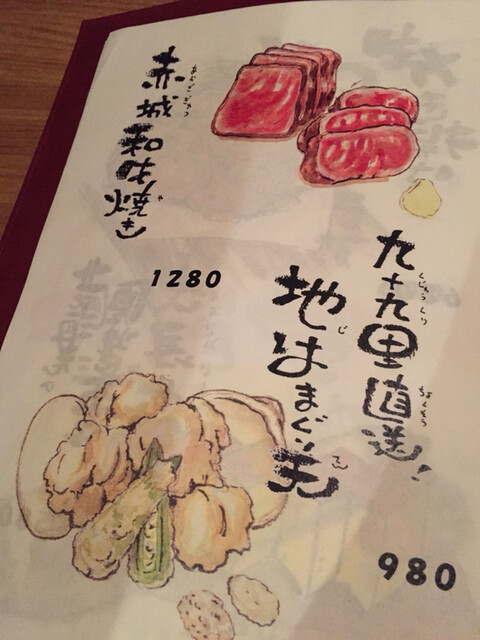 九十九里直送!
くじゅうくり
ちょくそう
地はまぐり天
じ
てん
980
赤城和牛焼き
あかぎぎゅう
や
1280